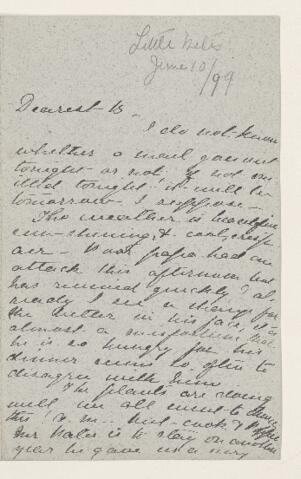 Little Belts
June 10/99
Dearest B
I do not know
whether a mail goes out
tonight or not. If not
tonight it will be
tomorrow I suppose.
The weather is beautiful
sun-shining & cool, crisp
air. Poor papa had an
attack this afternoon but
has revived quickly & al-
ready I see a change for
the better in his face, it is
almost a misfortune that
he is so hungry for his
dinner seems so often to
disagree with him.
The plants are doing
well we all went to
this a.m. but cook &
Mr. is to stay on another
year he gave us a very